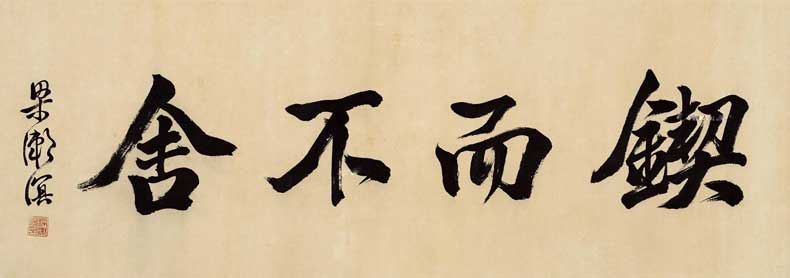 鍥而不舍
梁漱溟